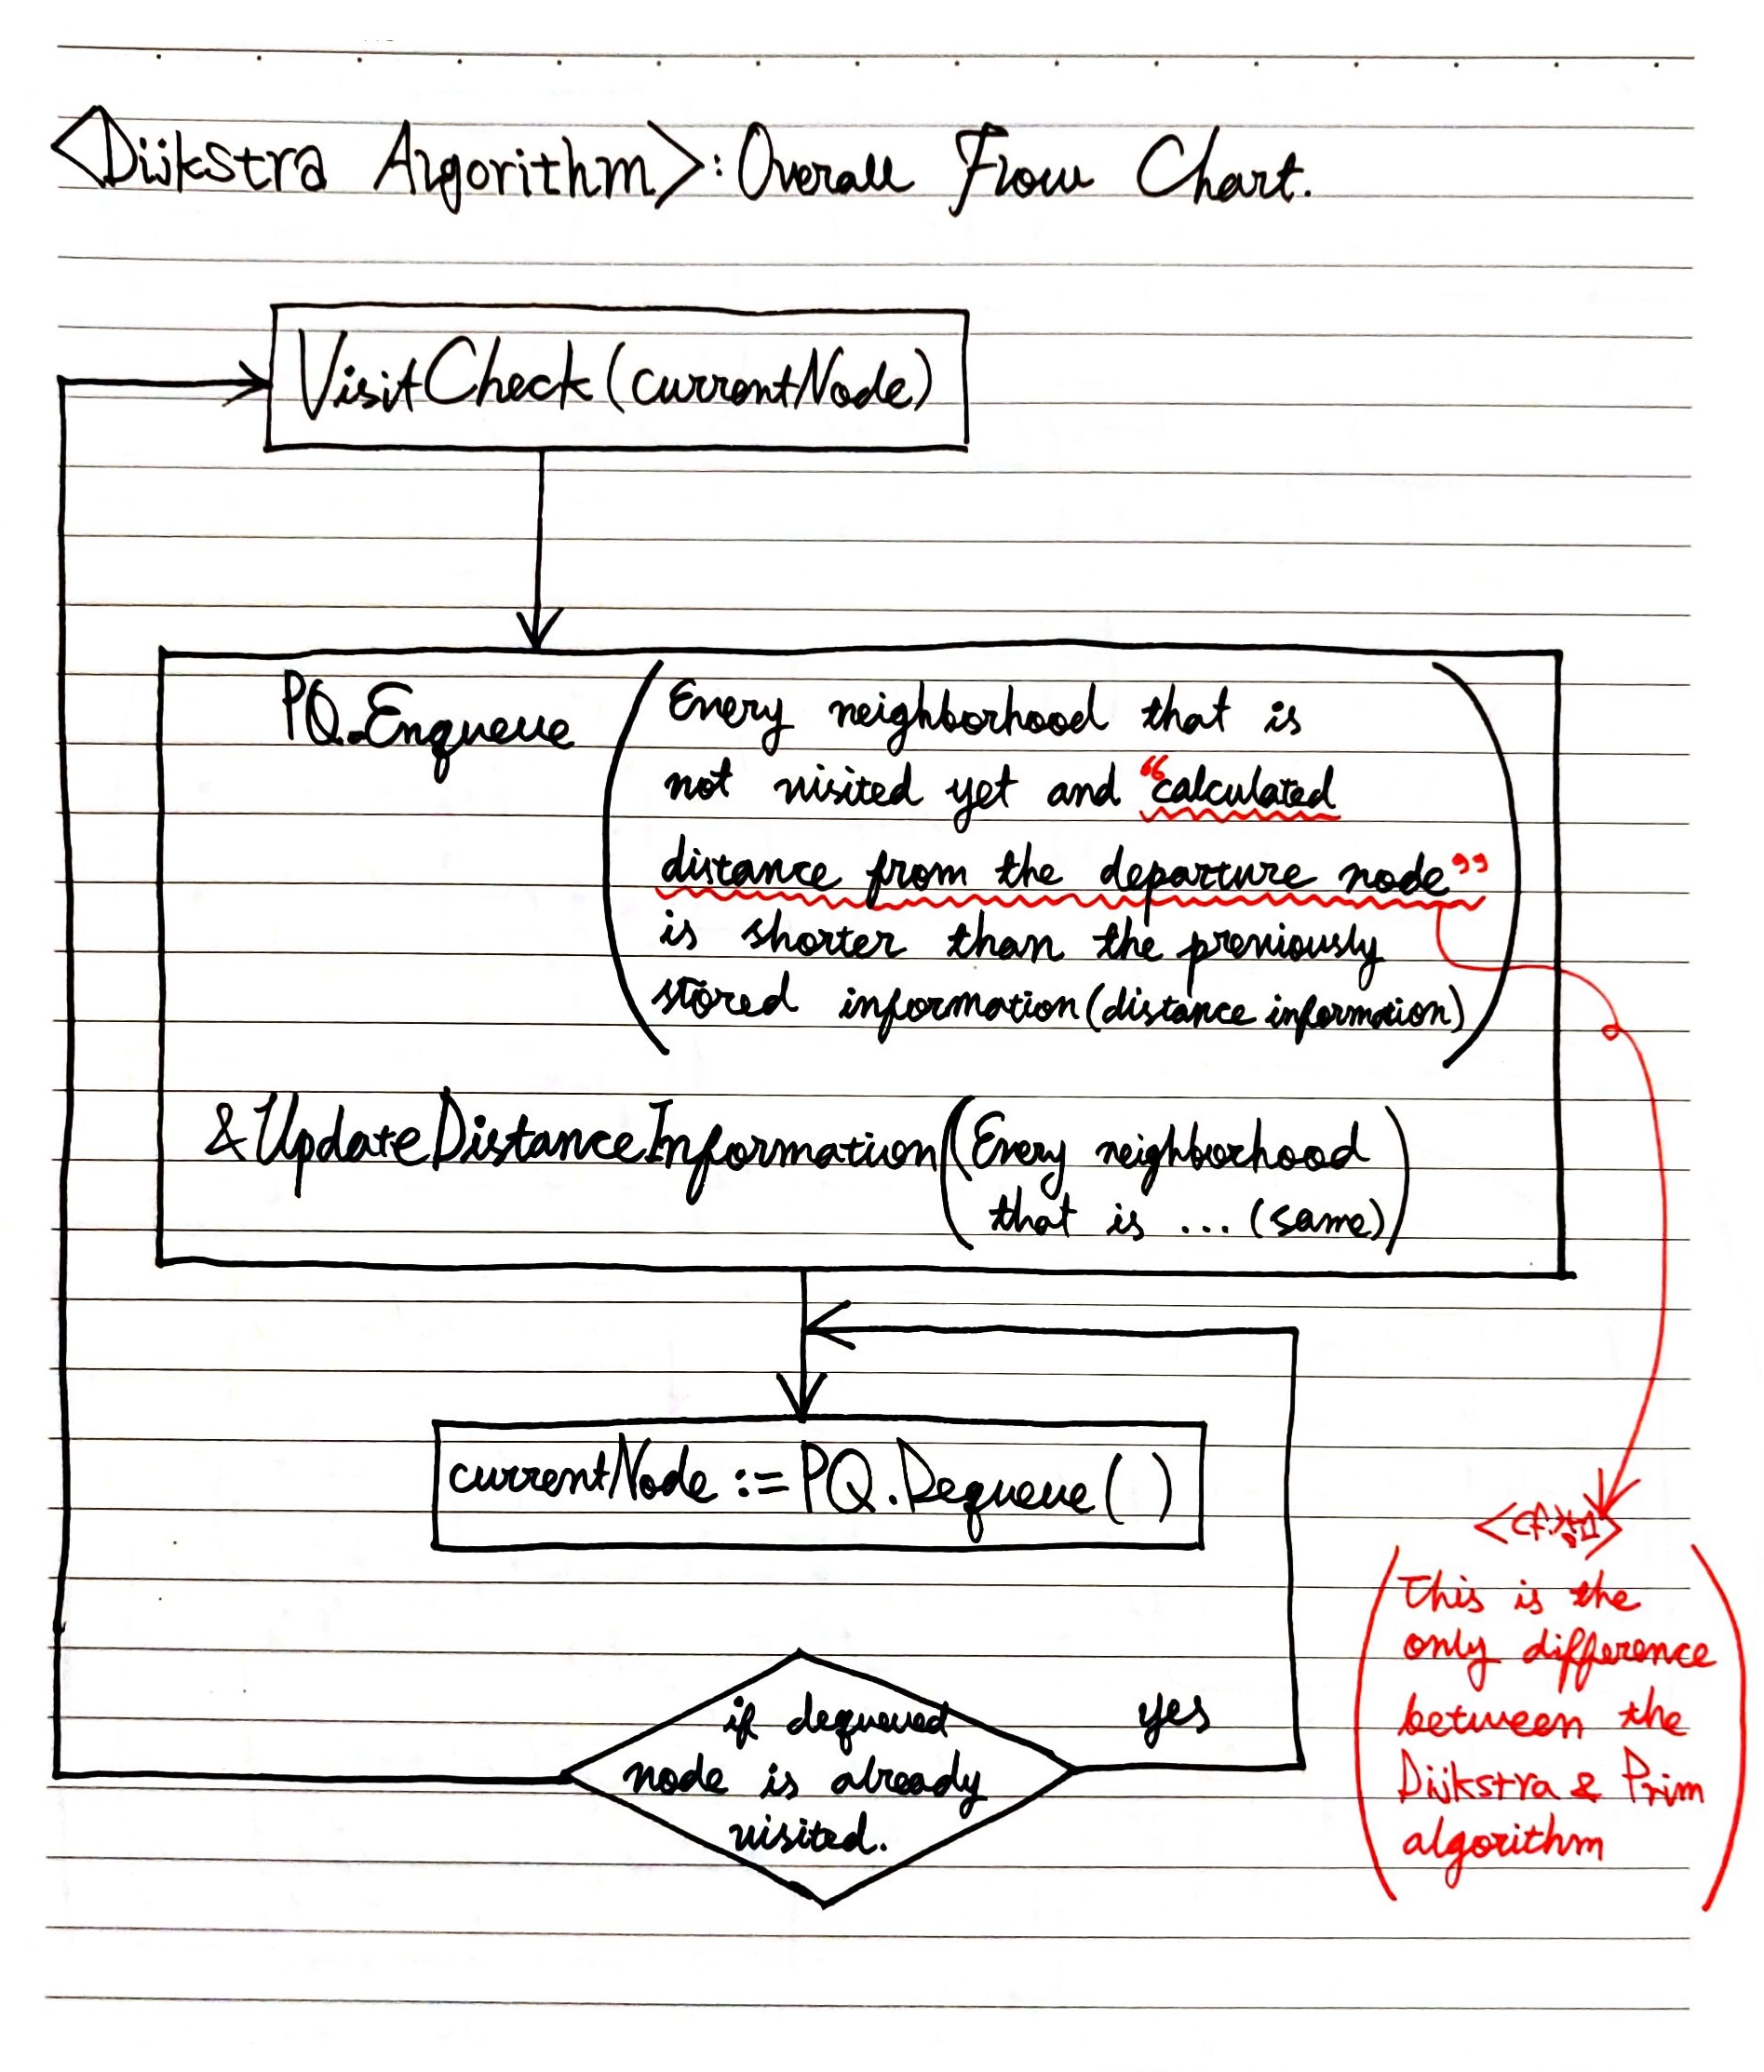 <Dijkstra Algorithm>: Overall Flow Chart.
VisitCheck(currentNode)
PQ.Enqueue
Every neighborhood that is
not visited yet and "calculated
distance from the departure node"
is shorter than the previously
stored information(distance information)
&UpdateDistanceInformation(Every neighborhood
that is ... (same))
currentNode := PQ.Dequeue( )
if dequeued
node is already
visited.
yes
This is the
only difference
between the
Dijkstra & Prim
algorithm